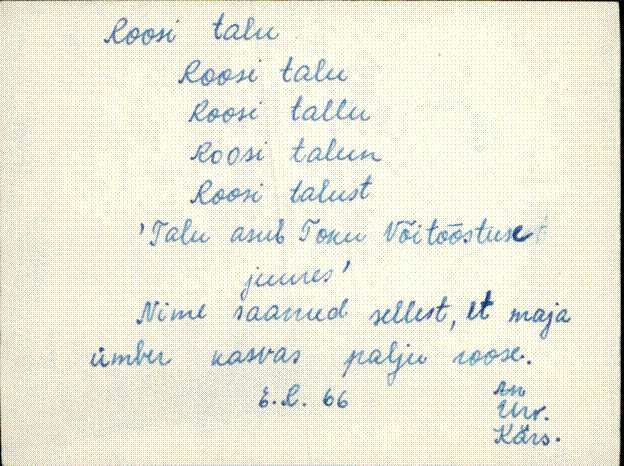 Roosi talu
Roosi talu
Roosi tallu
Roosi talun
Roosi talust
'Talu asub Toku Võitööstuse
juures'
Nime saanud sellest, et maja
ümber kasvas palju roose.
E. R. 66
An
Urv.
Kärs.